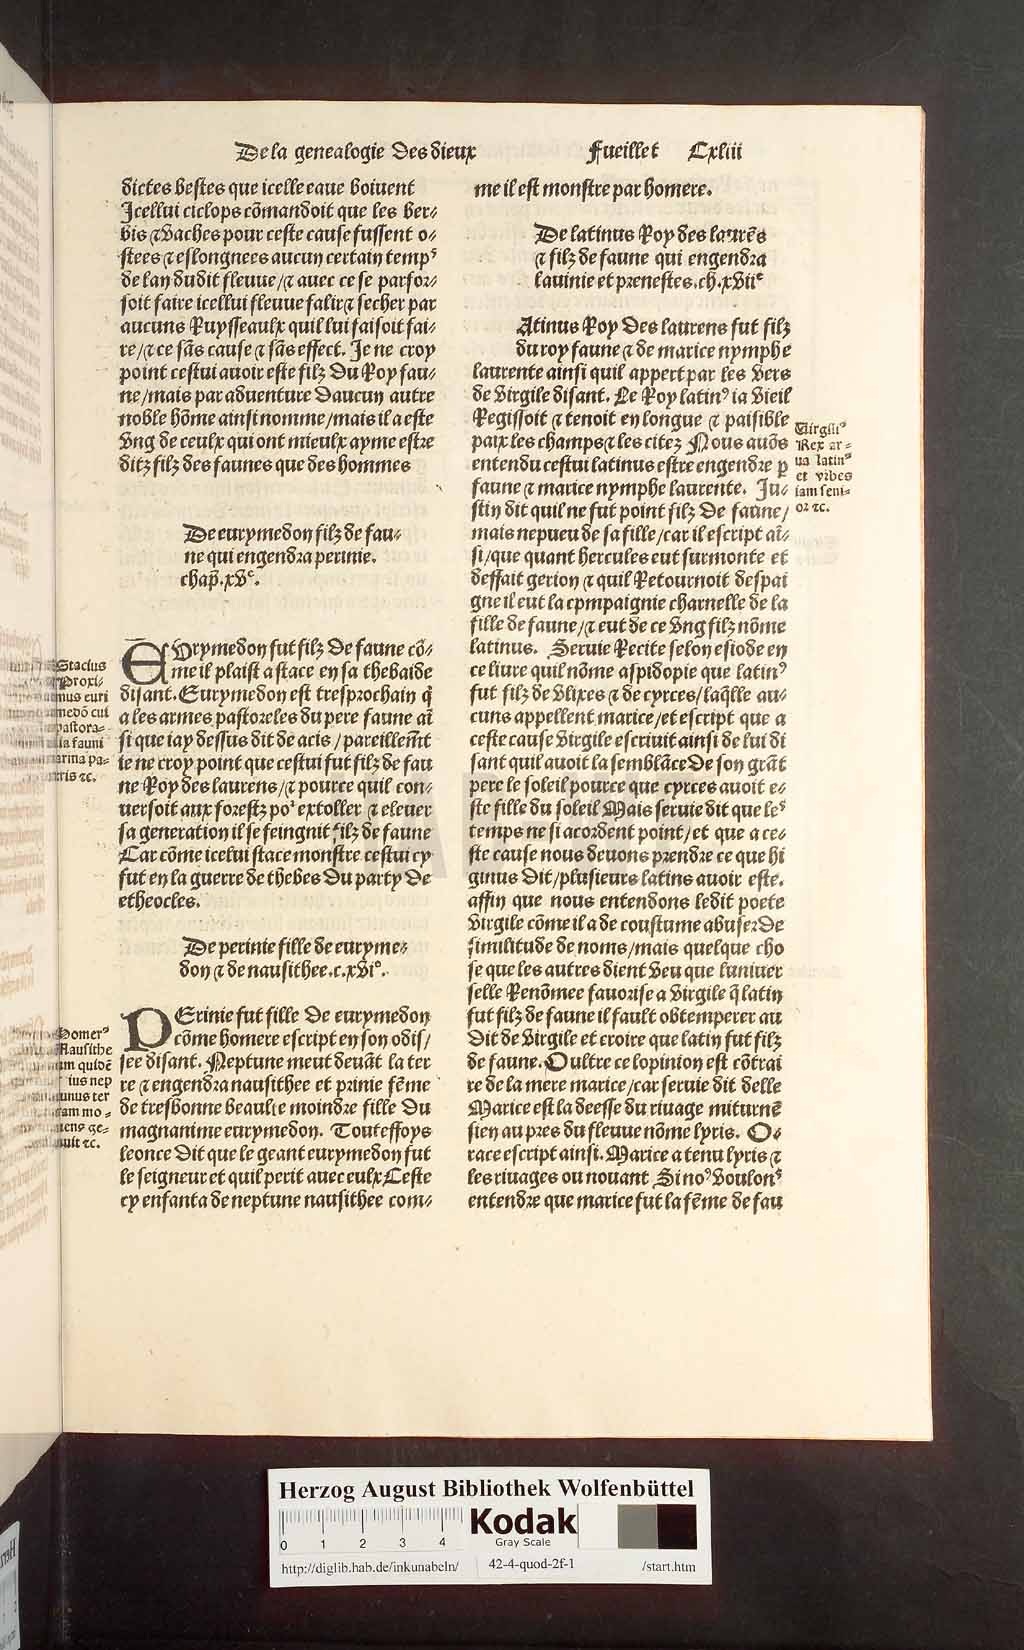 De la genealogie des dieux Fueillet Cxliii
dictes bestes que icelle eaue boiuent
Icellui ciclops cõmandoit que les ber⸗
bis ⁊ vaches pour ceste cause fussent o⸗
stees ⁊ eslongnees aucun certain tempˢ
de lan dudit fleuue/⁊ auec ce se parfor⸗
soit faire icellui fleuue salir ⁊ secher par
aucuns Ruysseaulx quil lui faisoit fai⸗
re/⁊ ce sãs cause ⁊ sãs effect. Ie ne croy
point cestui auoir este filz du Roy fau⸗
ne/mais par aduenture daucun autre
noble hõme ainsi nomme/mais il a este
vng de ceulx qui ont mieulx ayme estre
ditz filz des faunes que des hommes
De eurymedon filz de fau⸗
ne qui engendra perinie.
chap̃.xvᵉ.
EVrymedon fut filz de faune cõ⸗
me il plaist a stace en sa thebaide
disant. Eurymedon est tresprochain q̃
a les armes pastoreles du pere faune aĩ
si que iay dessus dit de acis/pareillem̃t
ie ne croy point que cestui fut filz de fau
ne Roy des laurens/⁊ pource quil con⸗
uersoit aux forestz poʳ extoller ⁊ eleuer
sa generation il se feingnit filz de faune
Car cõme icelui stace monstre cestui cy
fut en la guerre de thebes du party de
etheocles.
De perinie fille de euryme⸗
don ⁊ de nausithee.c.xviᵒ.
PErinie fut fille de eurymedon
cõme homere escript en son odis/
see disant. Neptune meut deuãt la ter
re ⁊ engendra nausithee et prinie fẽme
de tresbonne beaulte moindre fille du
magnanime eurymedon. Touteffoys
leonce dit que le geant eurymedon fut
le seigneur et quil perit auec eulx Ceste
cy enfanta de neptune nausithee com⸗
Stacius
Proxi⸗
mus euri
medõ cui
pastora⸗
lia fauni
arma pa⸗
tris ⁊c.
Homerꝰ
Nausithe
um quidẽ
ius nep
unus ter
am mo⸗
uens ge⸗
nuit ⁊c.
me il est monstre par homere.
De latinus Roy des laurẽs
⁊ filz de faune qui engendra
lauinie et prenestes.ch.xviiᵉ
Atinus Roy des laurens fut filz
du roy faune ⁊ de marice nymphe
laurente ainsi quil appert par les vers
de virgile disant. Le Roy latinꝰ ia vieil
Regissoit ⁊ tenoit en longue ⁊ paisible
paix les champs ⁊ les citez Nous auõs
entendu cestui latinus estre engendre ꝑ
faune ⁊ marice nymphe laurente. Iu⸗
stin dit quil ne fut point filz de faune/
mais nepueu de sa fille/car il escript aĩ⸗
si/que quant hercules eut surmonte et
deffait gerion ⁊ quil Retournoit despai
gne il eut la cpmpaignie charnelle de la
fille de faune/⁊ eut de ce vng filz nõme
latinus. Seruie Recite selon esiode en
ce liure quil nõme aspidopie que latinꝰ
fut filz de vlixes ⁊ de cyrces/laq̃lle au⸗
cuns appellent marice/et escript que a
ceste cause virgile escriuit ainsi de lui di
sant quil auoit la semblãce de son grãt
pere le soleil pource que cyrces auoit e⸗
ste fille du soleil Mais seruie dit que leˢ
temps ne si acordent point/et que a ce⸗
ste cause nous deuons prendre ce que hi
ginus dit/plusieurs latins auoir este.
affin que nous entendons ledit poete
virgile cõme il a de coustume abuser de
similitude de noms/mais quelque cho
se que les autres dient veu que luniuer
selle Renõmee fauorise a virgile q̃ latin
fut filz de faune il fault obtemperer au
dit de virgile et croire que latin fut filz
de faune. Oultre ce lopinion est cõtrai
re de la mere marice/car seruie dit delle
Marice est la deesse du riuage miturnẽ
sien au pres du fleuue nõme lyris. O⸗
race escript ainsi. Marice a tenu lyris ⁊
les riuages ou nouant Si noꝰ voulonˢ
entendre que marice fut la fẽme de fau
Virgiliꝰ
Rex ar⸗
ua latinꝰ
et vrbes
iam seni⸗
or ⁊c.
Herzog August Bibliothek Wolfenbüttel
0 1 2 3 4
Kodak
Gray Scale
http://diglib.hab.de/inkunabeln/ 42-4-quod-2f-1 /start.htm